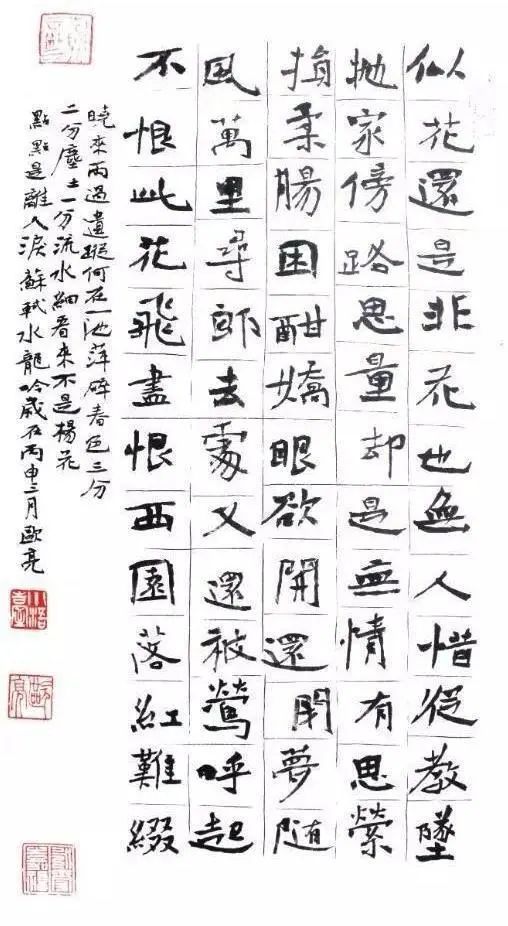 似花還是非花也無人惜從教墜
抛家傍路思量却是無情有思縈
損柔腸困酣嬌眼欲開還閉夢随
風萬里尋郎去處又還被鶯呼起
不恨此花飛盡恨西園落紅難綴
曉來雨過遺蹤何在一池萍碎春色三分
二分塵土一分流水細看來不是楊花
點點是離人淚蘇軾水龍吟歲在丙申三月歐亮